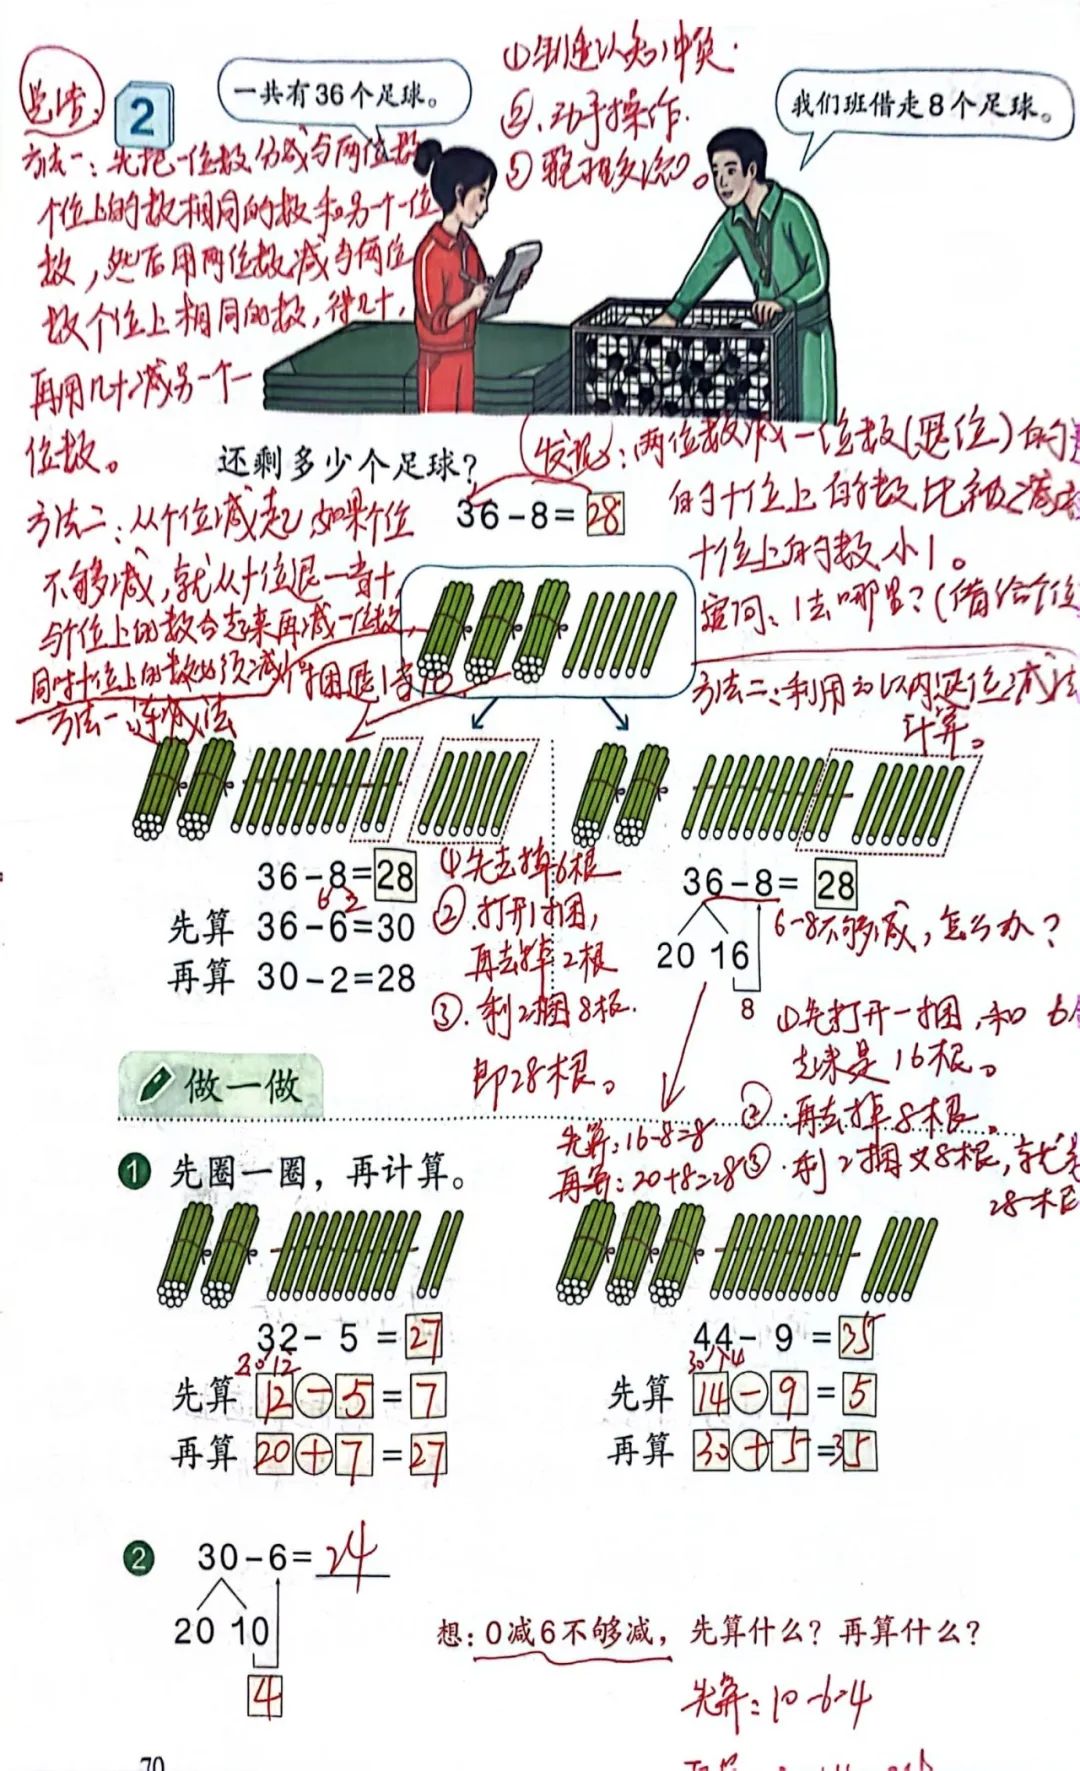 总结:
2
一共有36个足球。
我们班借走8个足球。
①创造认知冲突.
②.动手操作.
方法一:先把一位数分成与两位数
个位上的数相同的数和另一个一位
数,然后用两位数减与两位
数个位上相同的数,得几十,
再用几十减另一个一
位数。
还剩多少个足球?
36-8=28
(发现):两位数减一位数(退位)的
的十位上的数比被减数
十位上的数小1。
追问:1去哪里?(借给个位
方法二:从个位减起,如果个位
不够减,就从十位退一当十,
与个位上的数合起来再减一位数,
同时十位上的数必须减1
捆退1当10
方法一连减法
方法二:利用20以内退位减法
计算。
36-8=28
6 2
先算 36-6=30
再算 30-2=28
①先去掉6根
②.打开1捆,
再去掉2根
③.剩2捆8根.
即28根。
36-8=28
20 16
8
6-8不够减,怎么办?
①先打开一捆,和6
起来是16根。
②.再去掉8根。
③.剩2捆又8根,就是
28根
先算:16-8=8
再算:20+8=28
做一做
1 先圈一圈,再计算。
32-5=27
20 12
先算 12-5=7
再算 20+7=27
44-9=35
30 14
先算 14-9=5
再算 30+5=35
2 30-6=24
20 10
4
想:0减6不够减,先算什么?再算什么?
先算:10-6=4
70